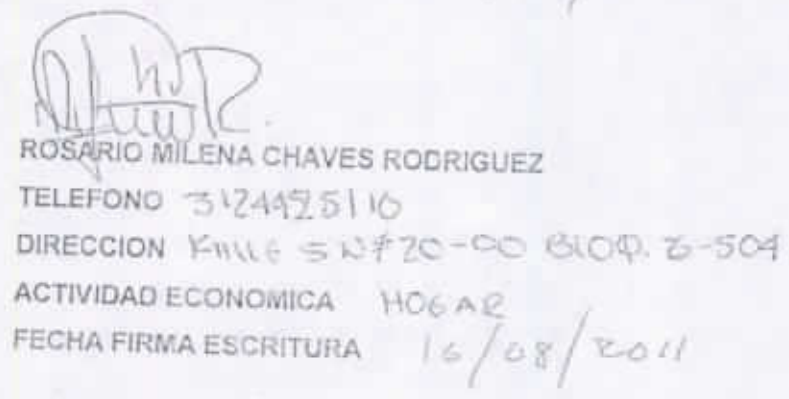 ROSARIO MILENA CHAVES RODRIGUEZ
TELEFONO 3124495110
DIRECCION 5 N#20-00 BLOQ. 504
ACTIVIDAD ECONOMICA HOGAR
FECHA FIRMA ESCRITURA 16/08/2011